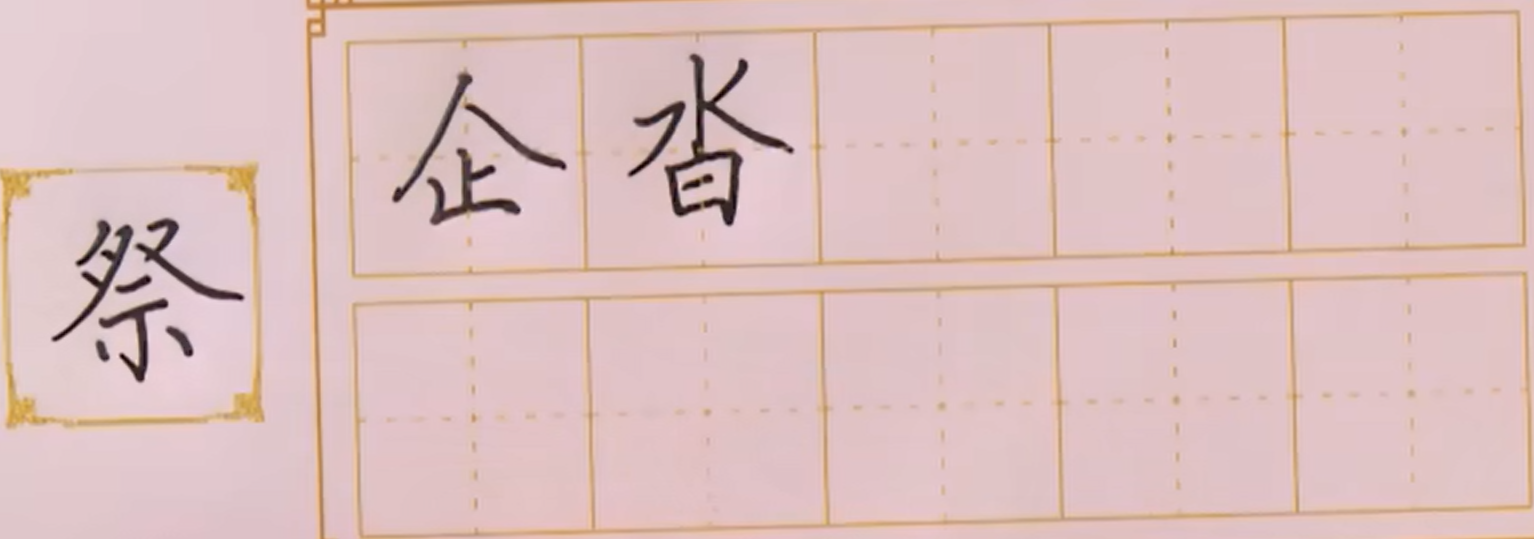 祭
企沓